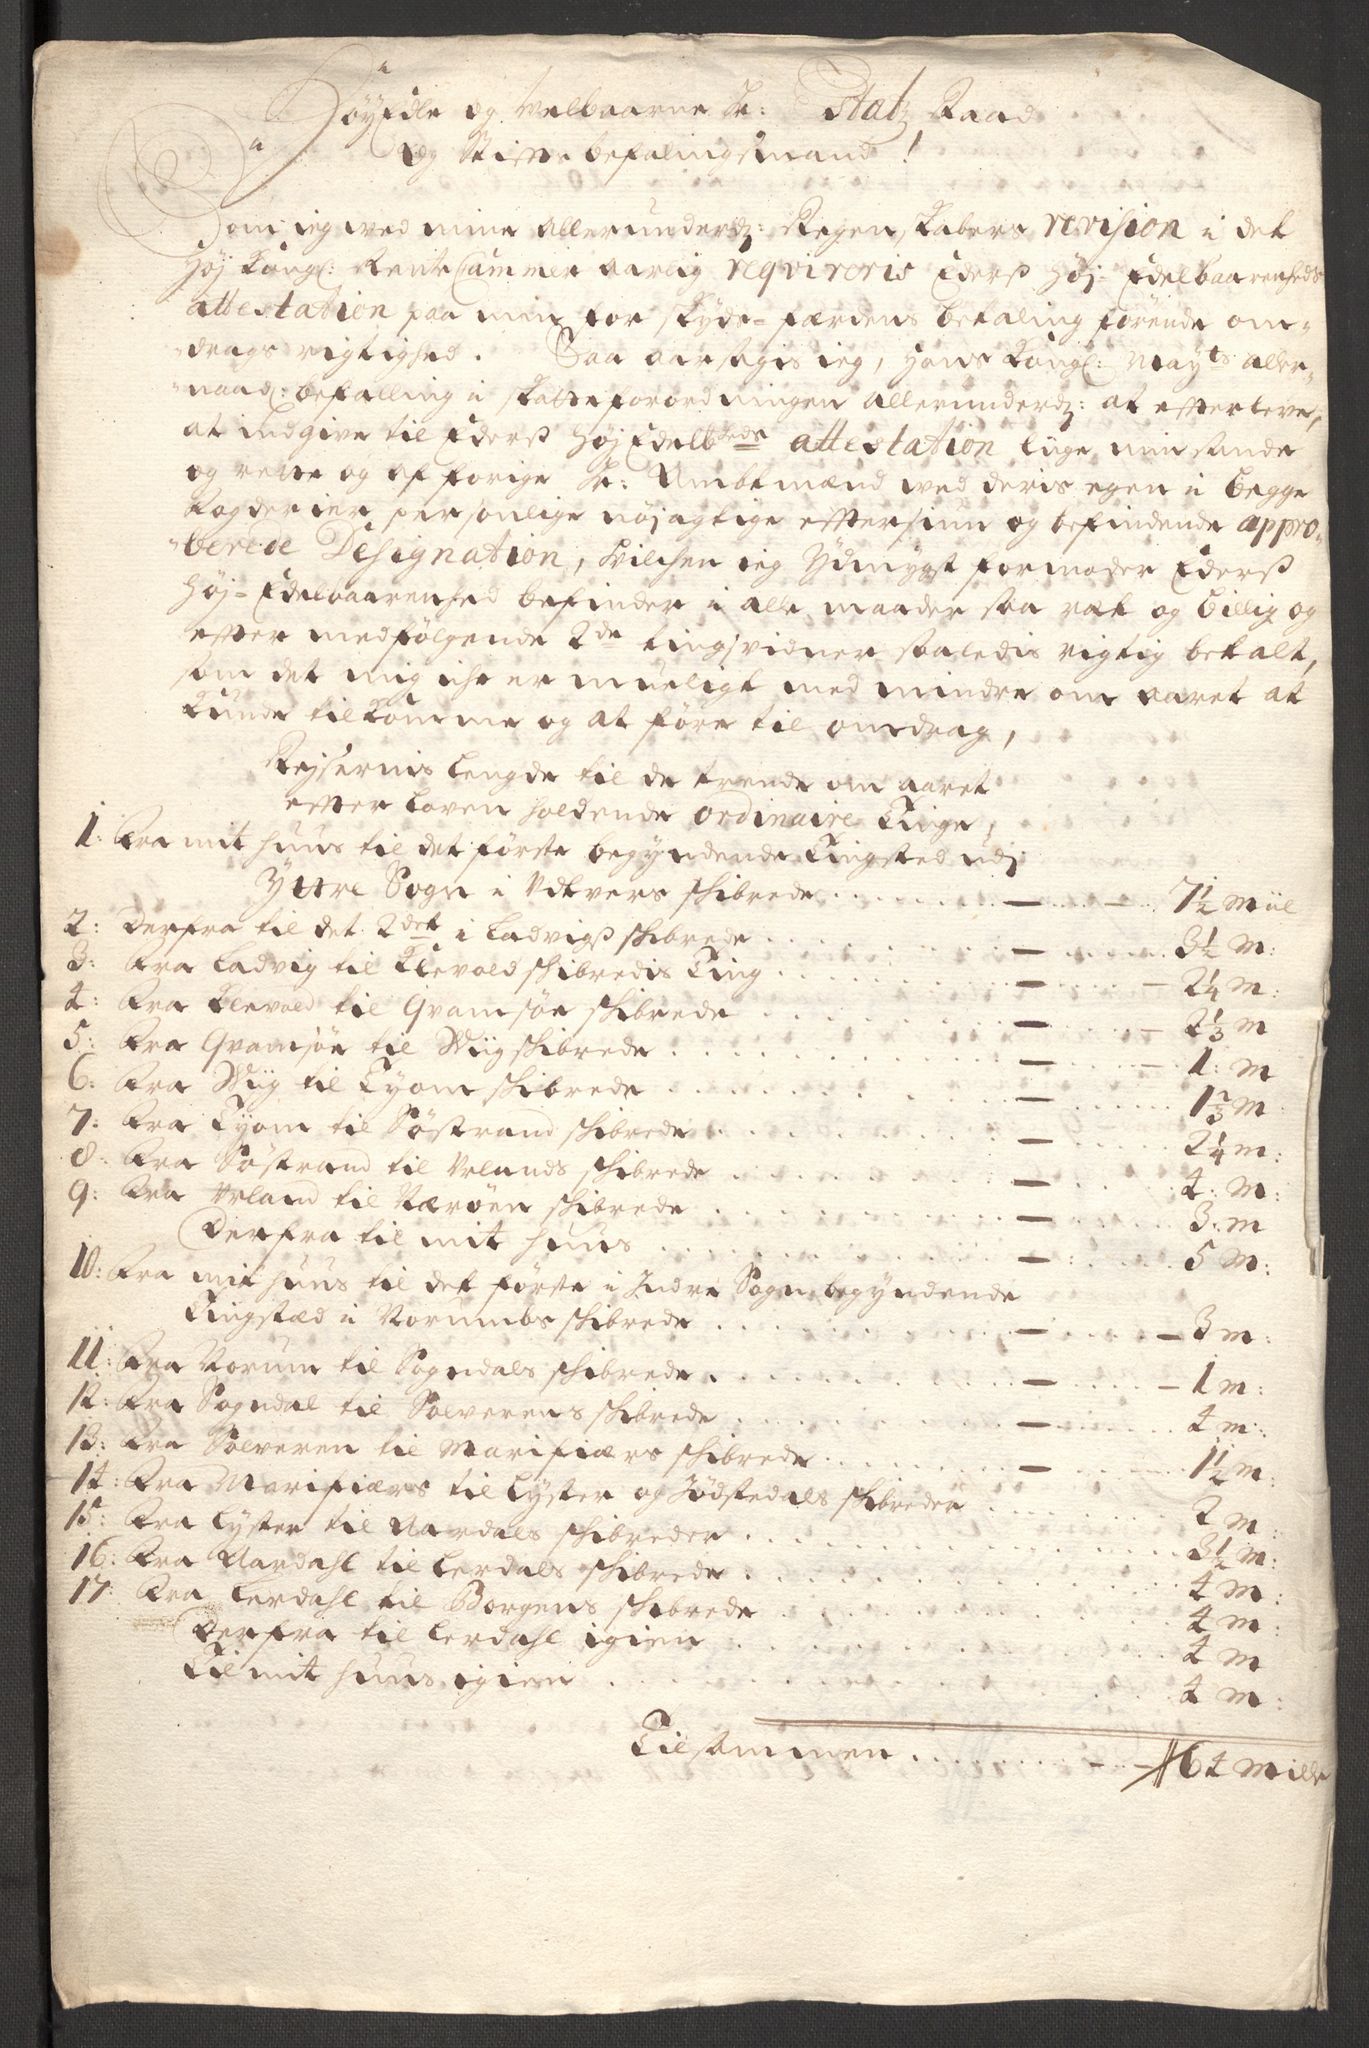 HøyEdle og Velbaarne Hr: Etatz Raad
og Stifts befalingsmand!
Som ieg ved mine Allerunderd: Regenskabers revision i det
Høj Kongl: Rente Cammer aarlig reqvireris Ederß Høj-Edelbaarenheds
attestation paa min for skyds-færdens betaling førende om-
drags rigtighed. Saa aarsagis ieg, Hans Kongl: Mayts aller-
naad: befalling i skatteforordningen allerunderd: at efterleve,
at indgive til Ederß HøjEdelbheds attestation lige min sande
og rette og af forige Hr: Ambtmænd ved deris egen i begge
fogderier personlige nøjagtige eftersiun og befindende appro-
berede Designation, hvilchen ieg Ydmygst formoder Ederß
Høj-Edelbaarenhed befinder i alle maader saa ræt og billig og
efter medfølgende 2de tingsvidner saaledis rigtig betalt,
som det mig iche er mueligt med mindre om aaret at
kunde tilkomme og at føre til omdrag,
Rejsernis lengde til de trende om aaret
efter loven holdende ordinaire Tinge,
1: Fra mit huus til det første begyndende Tingsted udj
Yttre Sogn i Udvers schibrede — 7½ Miil
2: Derfra til det 2det i Ladvigß schibrede — 3½ M:
3: Fra Ladvig til Klevold schibredis Ting — 2¼ M:
4: Fra Klevold til Qvamsøe schibrede — 2⅓ M
5: Fra Qvamsøe til Wiig schibrede — 1: M
6: Fra Wiig til Tyom schibrede — 1⅔ M
7: Fra Tyom til Søstrand schibrede — 2¼ M:
8: Fra Søstrand til Urlands schibrede — 4: M:
9: Fra Urland til Nærøen schibrede — 3: M
Derfra til mit huus — 5 M:
10: Fra mit huus til det første i Indre Sogn begyndende
Tingstæd i Norumbs schibrede — 3 M:
11: Fra Norum til Sogndals schibrede — 1 M:
12: Fra Sogndal til Solverens schibrede — 4 M:
13: Fra Solveren til Marifiærs schibrede — 1½ M:
14: Fra Marifiærs til Lyster og Jødstedals schibreder 2 M:
15: Fra Lyster til Aardals schibreder 3½ M:
16: Fra Aardahl til Lerdals schibrede 4 M:
17: Fra Lerdahl til Borgens schibrede 4 M:
Derfra til Lerdahl igien 4 M
Til mit huus igien 4 M:
Tilsammen — 64 Mille